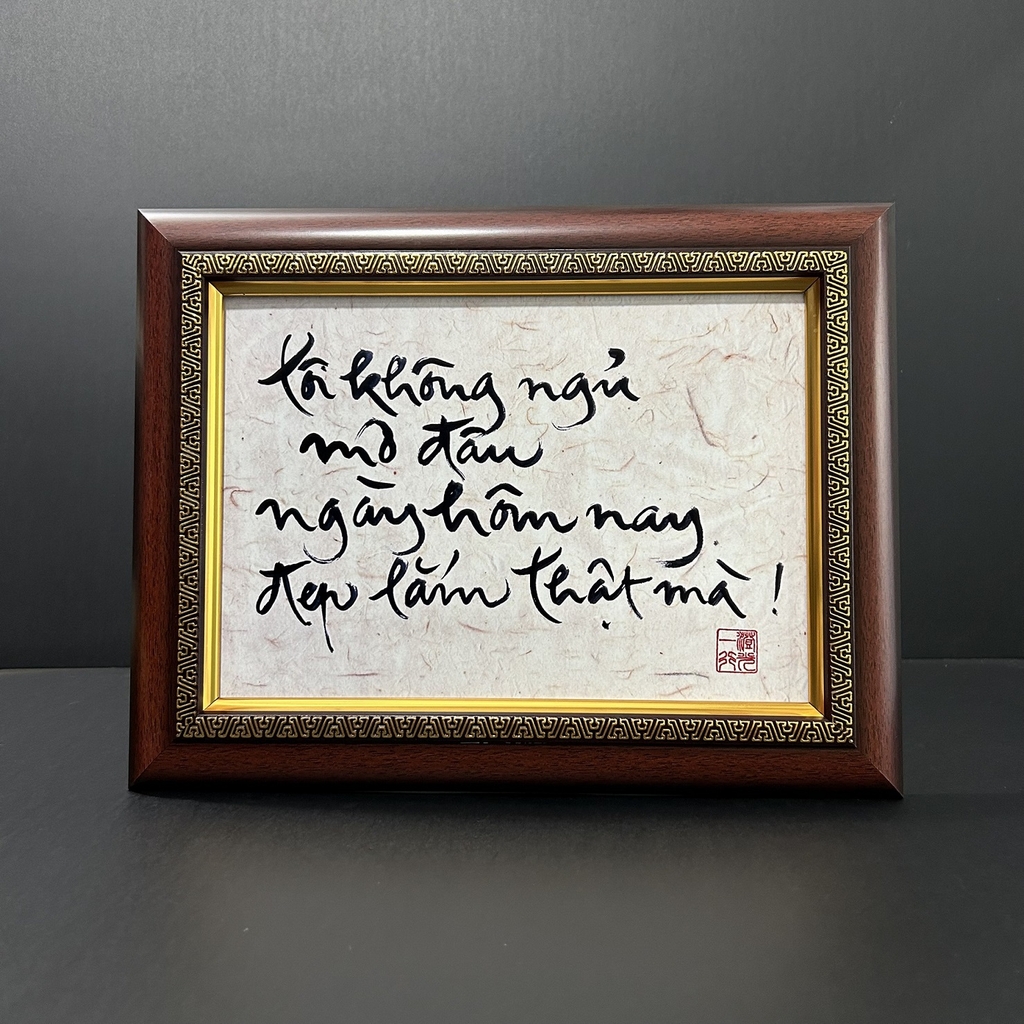 tôi không ngủ
mơ đâu
ngày hôm nay
đẹp lắm thật mà !
一行